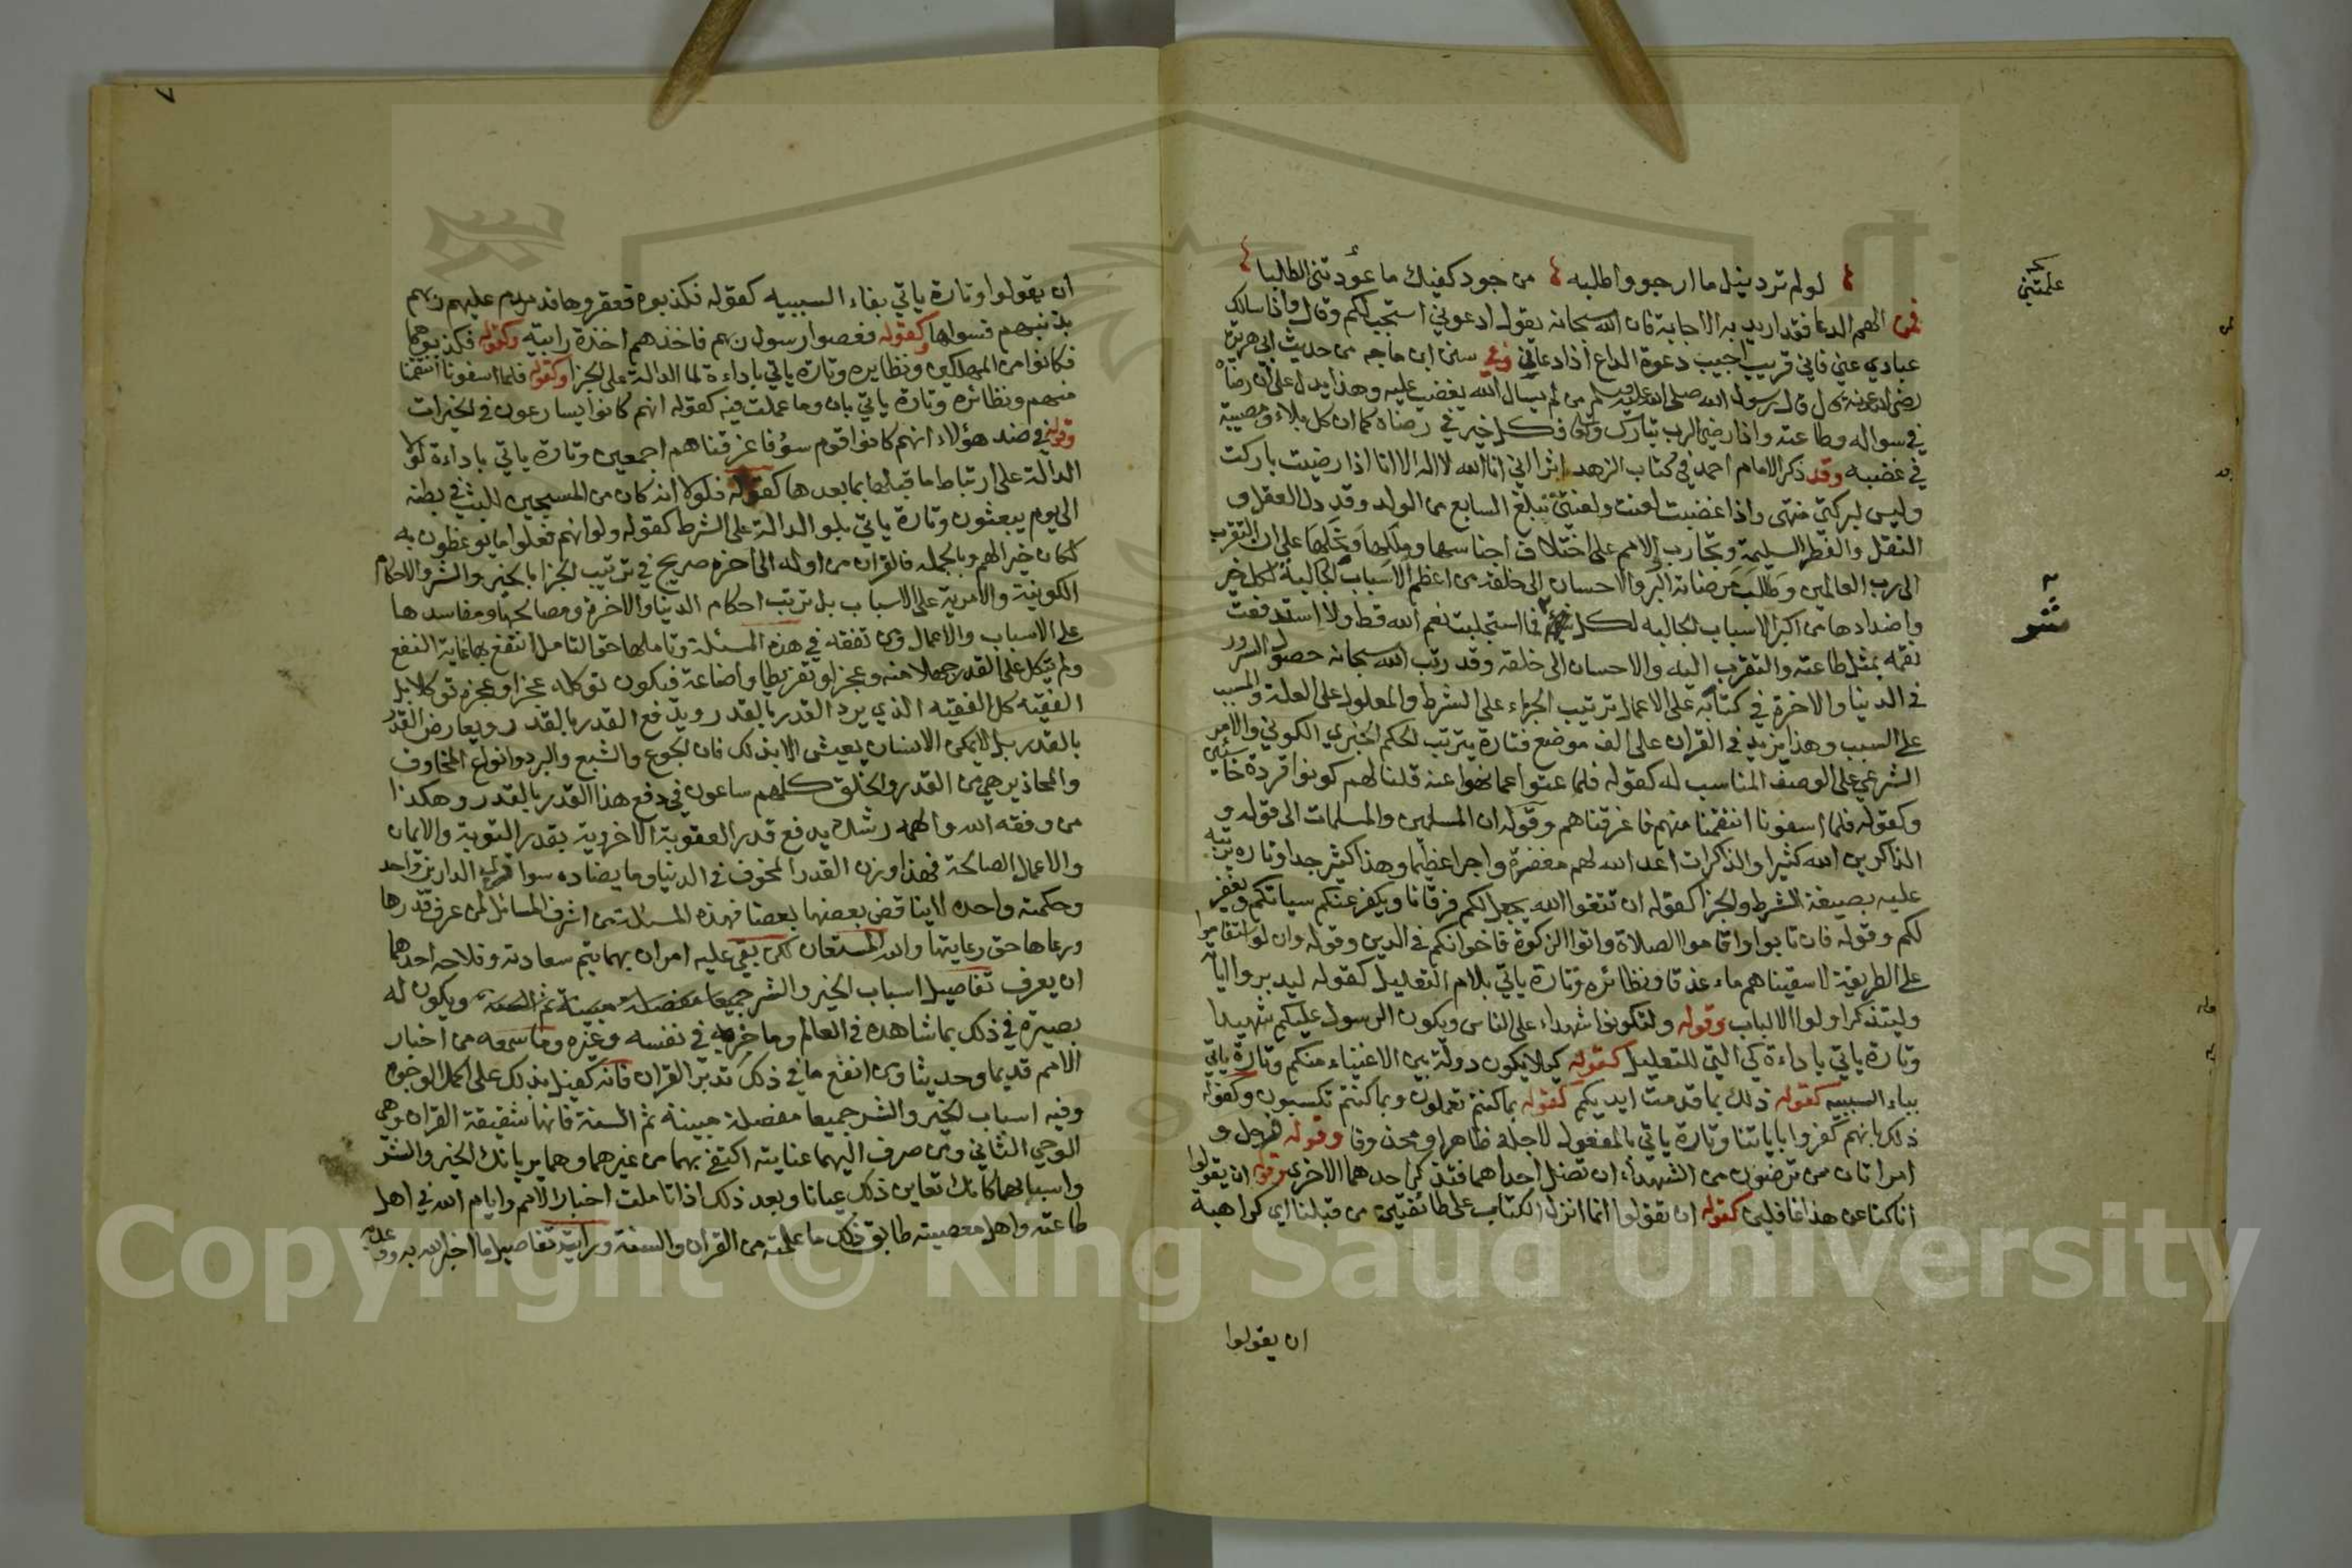 لو لم ترد نيل ما ارجو واطلبه من جود كفيك ما عوّدتني الطلبا
علمتني
فمن الهم الدعا فقد اريد به الاجابة فان الله سبحانه يقول ادعوني استجب لكم وقال واذا سالك
عبادي عني فاني قريب اجيب دعوة الداع اذا دعاني وفي سنن ابن ماجه من حديث ابي هريرة
رضي الله عنه قال قال رسول الله صلى الله عليه وسلم من لم يسال الله يغضب عليه وهذا يدل على ان رضاه
في سواله وطاعته واذا رضي الرب تبارك وتعالى فكل خير في رضاه كما ان كل بلاء ومصيبة
في غضبه وقد ذكر الامام احمد في كتاب الزهد اثرا اني انا الله لا اله الا انا اذا رضيت باركت
وليس لبركتي منتهى واذا غضبت لعنت ولعنتي تبلغ السابع من الولد وقد دل العقل و
النقل والفطر السليمة وتجارب الامم على اختلاف اجناسها ومللها ونحلها على ان التقرب
الى رب العالمين وطلب مرضاته البر والاحسان الى خلقه من اعظم الاسباب الجالبة لكل خير
واضدادها من اكبر الاسباب الجالبه لكل فما استجلبت نعم الله قط ولا استدفعت
شر
نقمه بمثل طاعته والتقرب اليه والاحسان الى خلقه وقد رتب الله سبحانه حصول السرور
في الدنيا والاخرة في كتابه على الاعمال ترتيب الجزاء على الشرط والمعلول على العلة والمسبب
على السبب وهذا يزيد في القران على الف موضع فتارة يترتب الحكم الخبري الكوني والامر
الشرعي على الوصف المناسب له كقوله فلما عتوا عما نهوا عنه قلنا لهم كونوا قردة خاسئين
وكقوله فلما اسفونا انتقمنا منهم فاغرقناهم وقوله ان المسلمين والمسلمات الى قوله و
الذاكرين الله كثيرا والذاكرات اعد الله لهم مغفرة واجرا عظيما وهذا كثير جدا وتاره ترتبه
عليه بصيغة الشرط والجزا كقوله ان تتقوا الله يجعل لكم فرقانا ويكفر عنكم سياتكم ويغفر
لكم وقوله فان تابوا واقاموا الصلاة واتوا الزكوة فاخوانكم في الدين وقوله وان لو استقاموا
على الطريقة لاسقيناهم ماء غدقا ونظائره وتارة ياتي بلام التعليل كقوله ليدبروا اياته
وليتذكر اولوا الالباب وقوله ولتكونوا شهداء على الناس ويكون الرسول عليكم شهيدا
وتارة ياتي باداءة كي التي للتعليل كقوله كيلا يكون دولة بين الاغنياء منكم وتارة ياتي
بباء السببيه كقوله ذلك بما قدمت ايديكم كقوله بما كنتم تعملون وبما كنتم تكسبون وكقوله
ذلك بانهم كفروا باياتنا وتارة ياتي بالمفعول لاجله ظاهرا ومحذوفا وقوله فرجل و
امراتان ممن ترضون من الشهداء ان تضل احداهما فتذكر احدهما الاخرى وقوله ان يقولوا
انا كنا عن هذا غافلين كقوله ان تقولوا انما انزل الكتاب على طائفتين من قبلنا اي كراهية
ان يقولوا
٧
ان يقولوا وتارة ياتي بفاء السببيه كقوله فكذبوه فعقروها فدمدم عليهم ربهم
بذنبهم فسواها وكقوله فعصوا رسول ربهم فاخذهم اخذة رابية وكقوله فكذبوهما
فكانوا من المهلكين ونظايره وتارة ياتي باداءة لما الدالة على الجزا وكقوله فلما اسفونا انتقمنا
منهم ونظائره وتارة ياتي بان وما عملت فيه كقوله انهم كانوا يسارعون في الخيرات
وقوله في ضد هؤلاء انهم كانوا قوم سوء فاغرقناهم اجمعين وتارة ياتي باداءة لولا
الدالة على ارتباط ما قبلها بما بعدها كقوله فلولا انه كان من المسبحين للبث في بطنه
الى يوم يبعثون وتارة ياتي بلو الدالة على الشرط كقوله ولو انهم فعلوا ما يوعظون به
لكان خيرا لهم وبالجمله فالقران من اوله الى اخره صريح في ترتيب الجزا بالخير والشر والاحكام
الكونية والامرية على الاسباب بل ترتيب احكام الدنيا والاخرة ومصالحها ومفاسدها
على الاسباب والاعمال ومن تفقه في هذه المسئلة وتاملها حق التامل انتفع بها غاية النفع
ولم يتكل على القدر جهلا منه وعجزا وتفريطا واضاعة فيكون توكله عجزا وعجزه توكلا بل
الفقيه كل الفقيه الذي يرد القدر بالقدر ويدفع القدر بالقدر ويعارض القدر
بالقدر بل لا يمكن الانسان يعيش الا بذلك فان الجوع والشبع والبرد وانواع المخاوف
والمحاذير هي من القدر والخلق كلهم ساعون في دفع هذا القدر بالقدر وهكذا
من وفقه الله والهمه رشده يدفع قدر العقوبة الاخروية بقدر التوبة والايمان
والاعمال الصالحة فهذا وزن القدر المخوف في الدنيا وما يضاده سوا فرب الدارين واحد
وحكمته واحده لا يناقض بعضها بعضا فهذه المسئلة من اشرف المسائل لمن عرف قدرها
ورعاها حق رعايتها والله المستعان لكن بقي عليه امران بهما يتم سعادته وفلاحه احدهما
ان يعرف تفاصيل اسباب الخير والشر جميعا مفصلة مبينة ثم السنة ويكون له
بصيرة في ذلك بما شاهده في العالم وما خبره في نفسه وغيره وما سمعه من اخبار
الامم قديما وحديثا ومن انفع ما في ذلك تدبر القران فانه كفيل بذلك على اكمل الوجوه
وفيه اسباب الخير والشر جميعا مفصلة مبينة ثم السنة فانها شقيقة القران وهي
الوحي الثاني ومن صرف اليهما عنايته اكتفى بهما من غيرهما وهما يريانك الخير والشر
واسبابهما كانك تعاين ذلك عيانا وبعد ذلك اذا تاملت اخبار الامم وايام الله في اهل
طاعته واهل معصيته طابق ذلك ما علمته من القران والسنة ورايته تفاصيل ما اخبر الله به ووعد به
Copyright © King Saud University